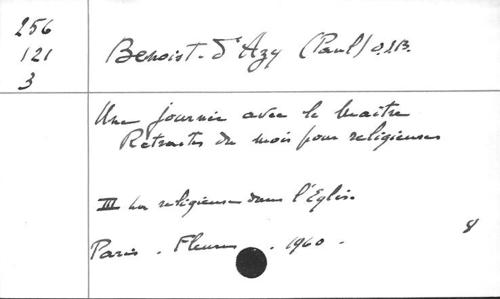 256
121
3
Benoist-d'Azy (Paul) O.S.B.
Une journée avec le Maître
Retraites du mois pour religieuses
III La religieuse dans l'Eglise.
Paris. Fleurus. 1960.
8